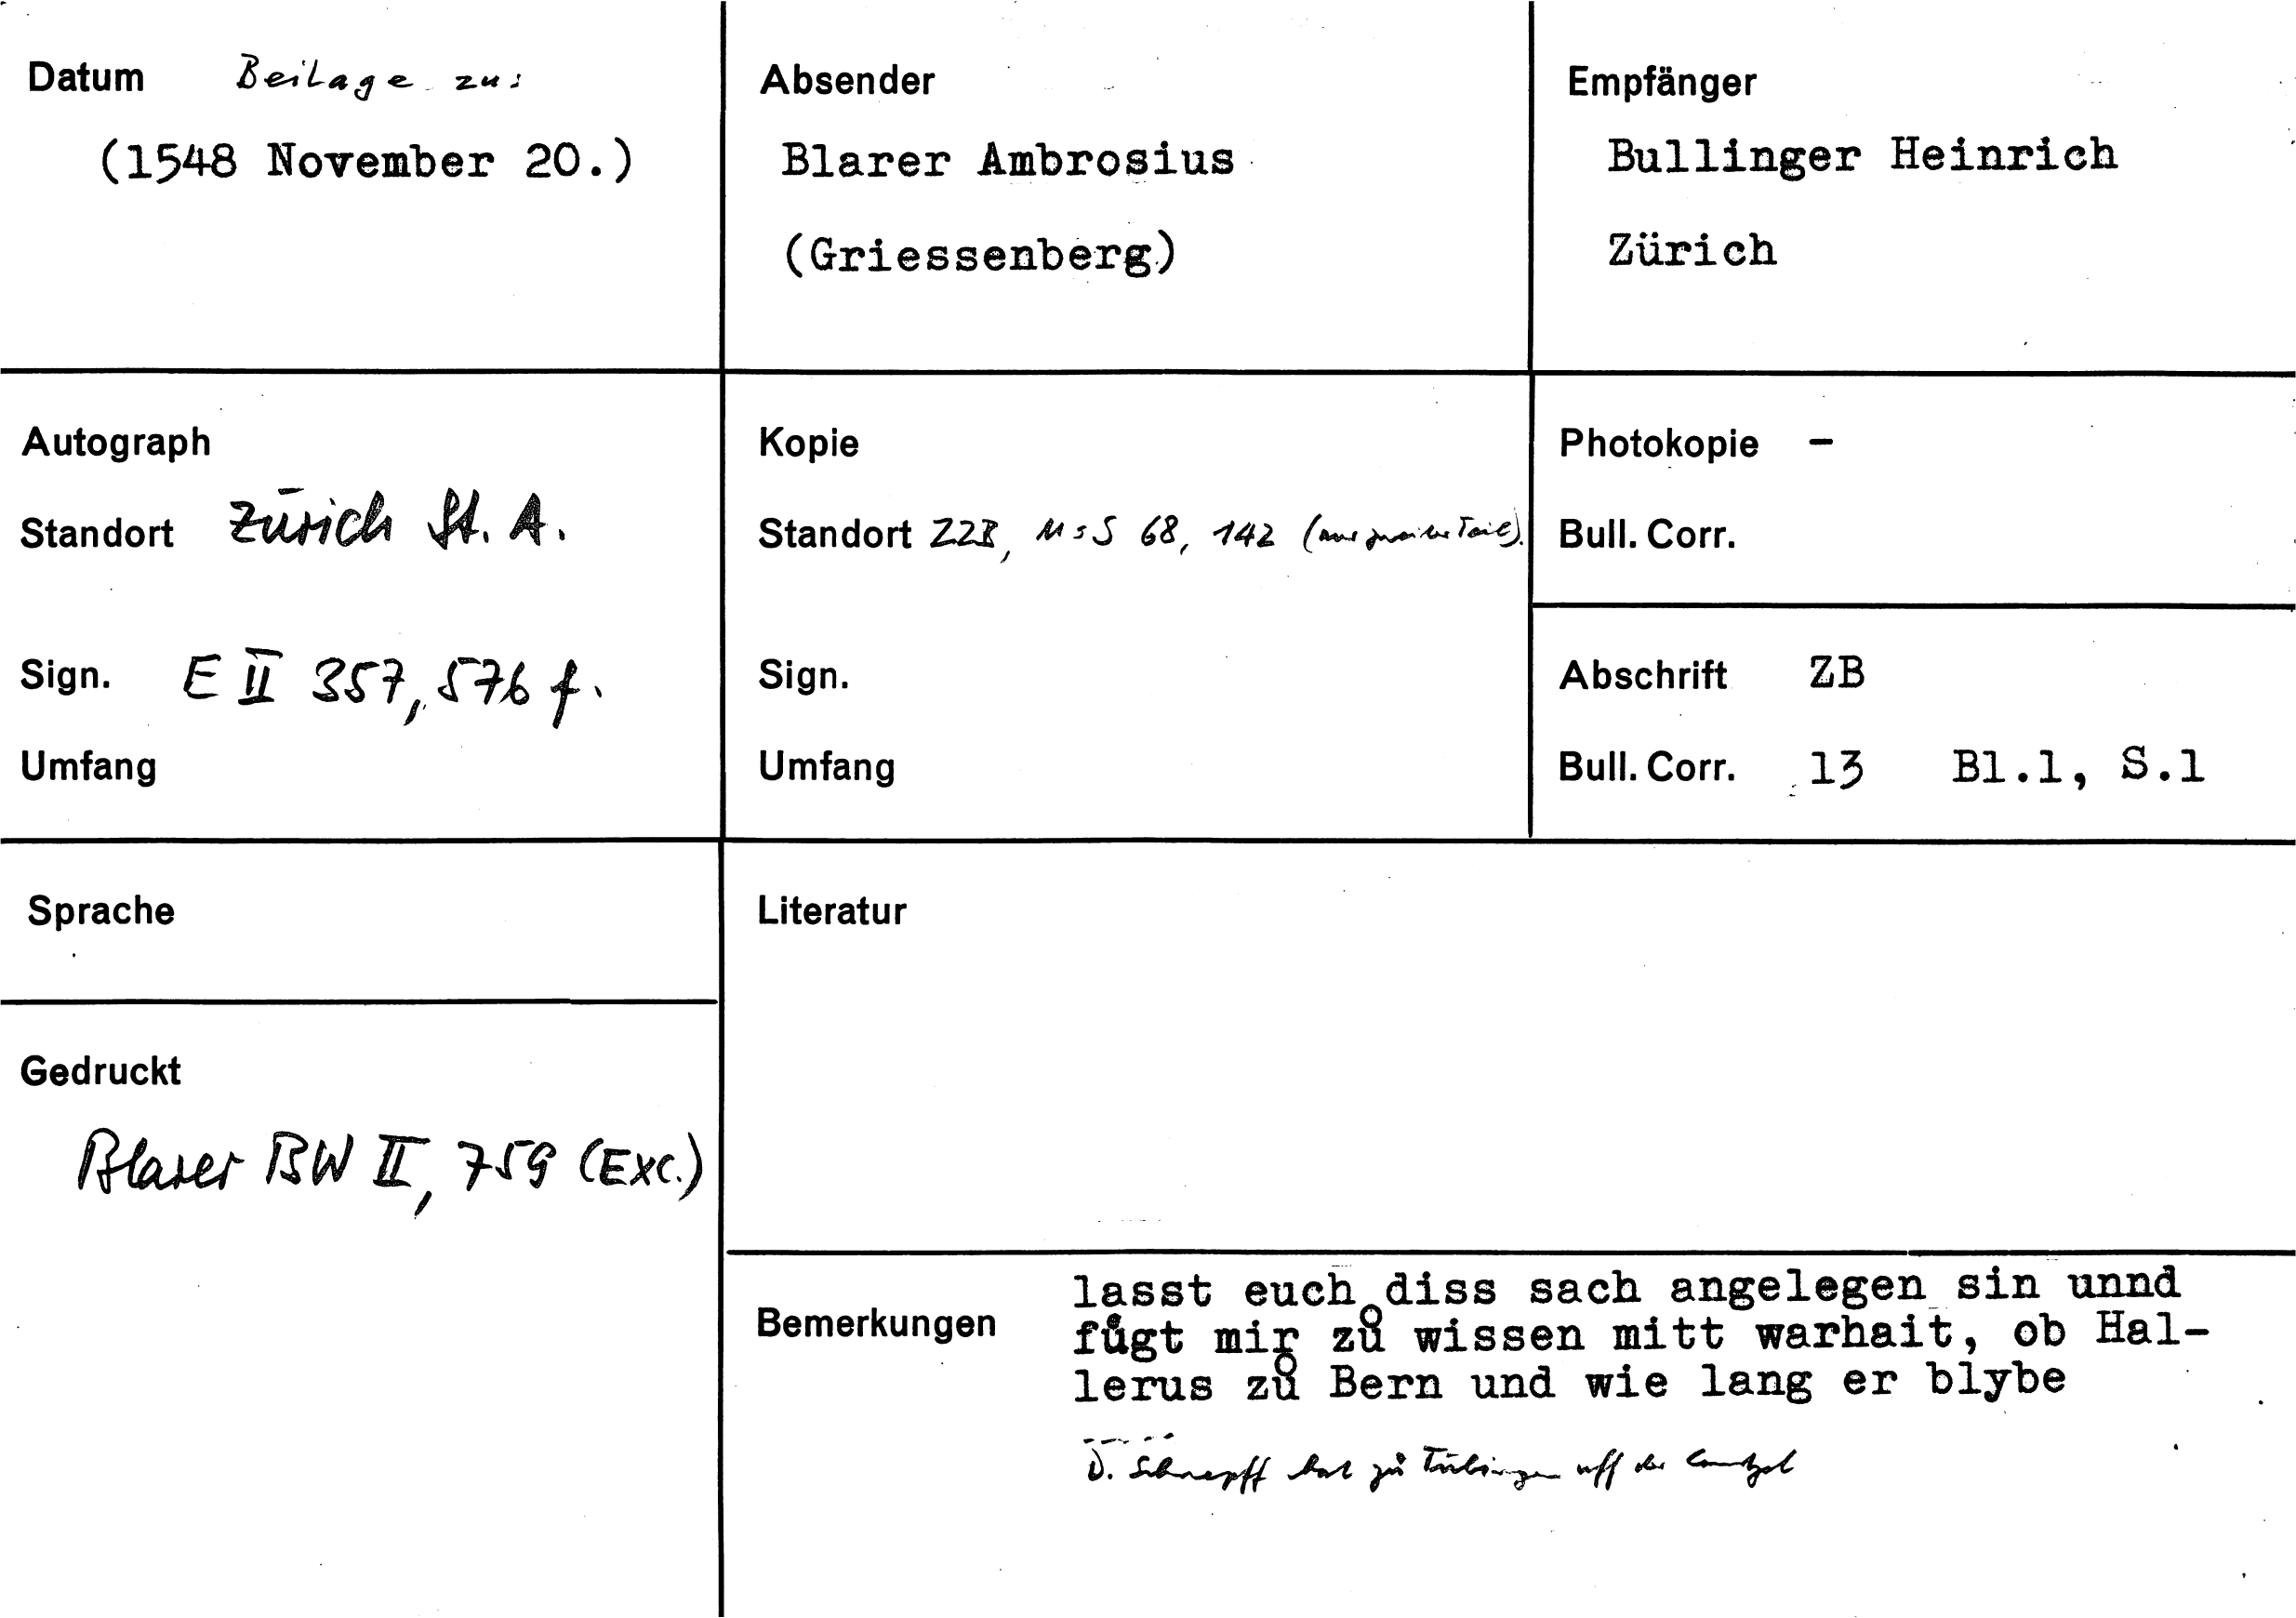 Datum Beilage zu:
(1548 November 20.)
Absender
Blarer Ambrosius
(Griessenberg)
Empfänger
Bullinger Heinrich
Zürich
Autograph
Standort Zürich St. A.
Sign. E II 357, 576 f.
Umfang
Kopie
Standort ZZB, MsS 68, 142 (nur zweiter Teil).
Sign.
Umfang
Photokopie -
Bull. Corr.
Abschrift ZB
Bull. Corr. 13 Bl.1, S.1
Sprache
Gedruckt
Blarer BW II, 759 (Exc.)
Literatur
Bemerkungen
lasst euch diss sach angelegen sin unnd
fůgt mir zů wissen mitt warhait, ob Hal-
lerus zů Bern und wie lang er blybe
D. Schnepff hat zů Tübingen uff der Cantzel